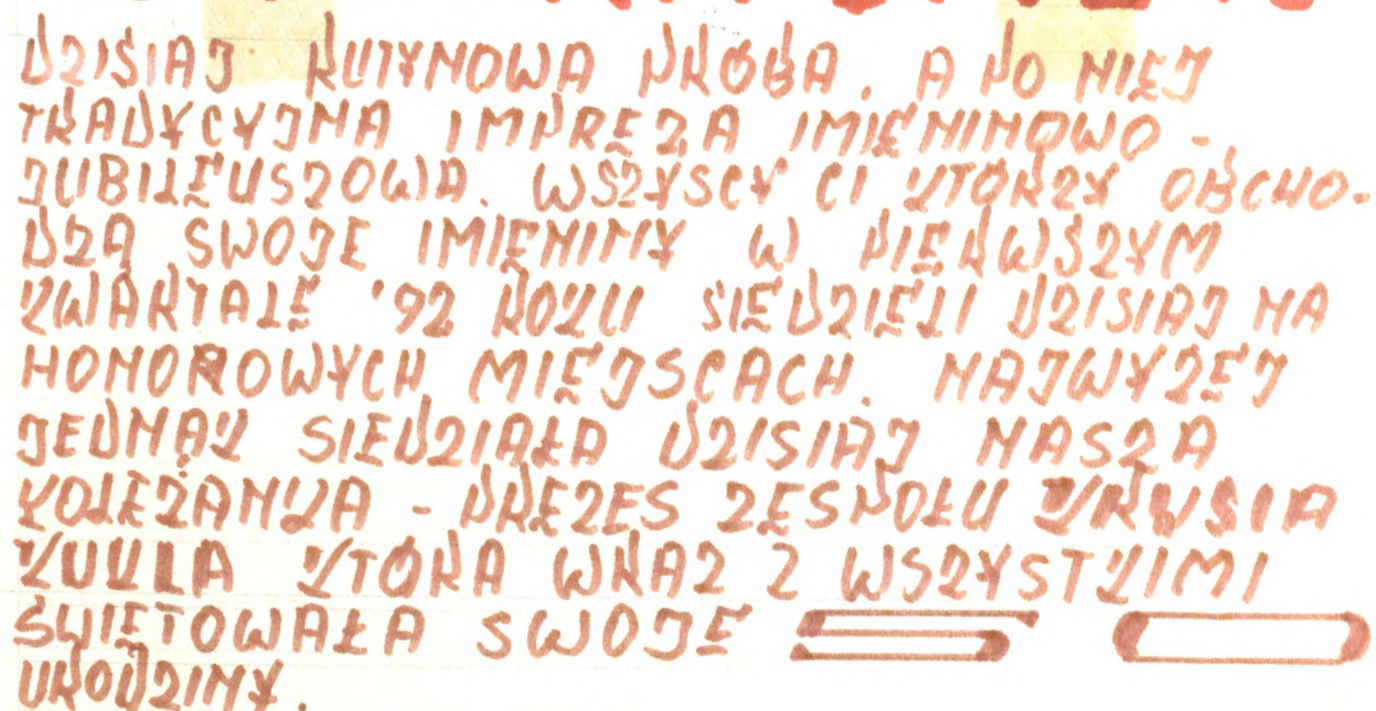 DZISIAJ RUTYNOWA PRÓBA. A PO NIEJ
TRADYCYJNA IMPREZA IMIENINOWO -
JUBILEUSZOWA. WSZYSCY CI KTÓRZY OBCHO-
DZĄ SWOJE IMIENINY W PIERWSZYM
KWARTALE '92 ROKU SIEDZIELI DZISIAJ NA
HONOROWYCH MIEJSCACH. NAJWYŻEJ
JEDNAK SIEDZIAŁA DZISIAJ NASZA
KOLEŻANKA - PREZES ZESPOŁU
KUKLA KTÓRA WRAZ Z WSZYSTKIMI
ŚWIĘTOWAŁA SWOJE 50
URODZINY.